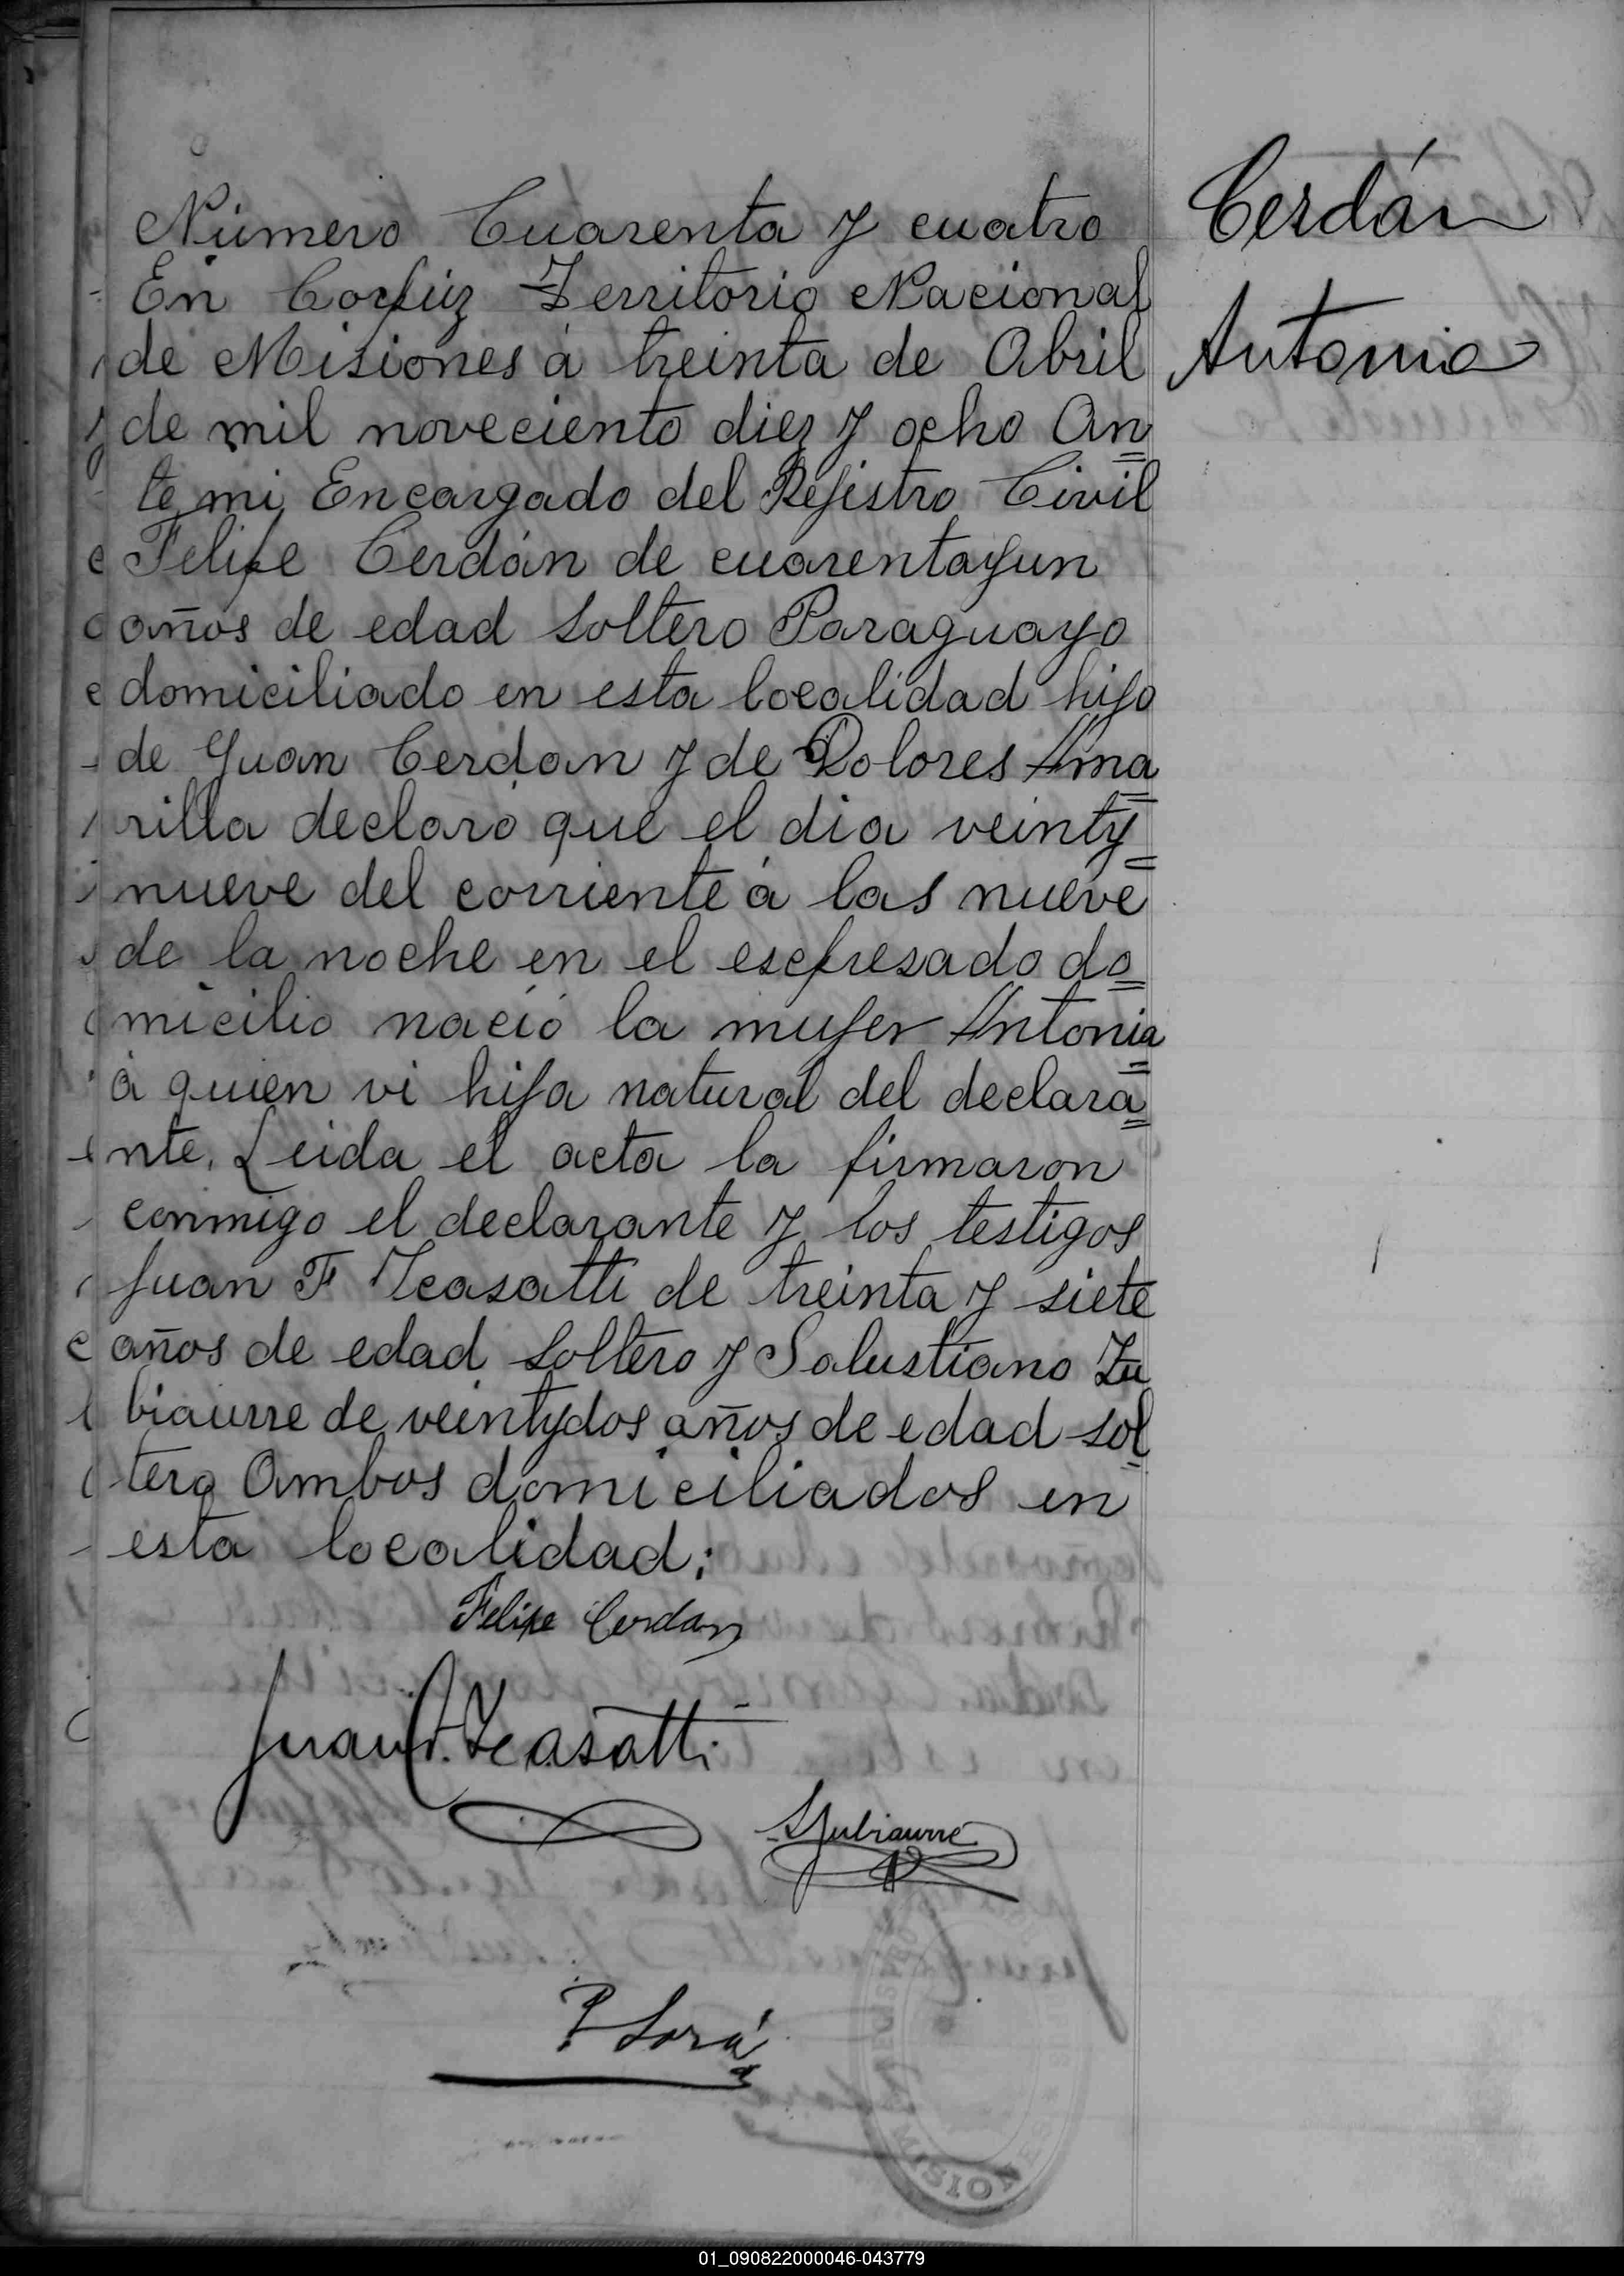 Cerdán
Antonia
Número Cuarenta y cuatro
En Corpúz Territorio Nacional
de Misiones á treinta de Abril
de mil noveciento diez y ocho An
te mi Encargado del Rejistro Civil
Felipe Cerdán de cuarentayun
años de edad soltero Paraguayo
domiciliado en esta localidad hijo
de Juan Cerdan y de Dolores Ama
rilla declaró que el dia veinty
nueve del corriente á las nueve
de la noche en el escpresado do
micilio nació la mujer Antonia
á quien vi hija natural del declara
nte. Leida el acta la firmaron
conmigo el declarante y los testigos
Juan F Icasatti de treinta y siete
años de edad soltero y Salustiano Zu
biaurre de veintydos años de edad sol
tero Ambos domiciliados en
esta localidad:
Felipe Cerdan
Juan F. Icasatti
S Zubiaurre
P Lorá
MISIONES
01_090822000046-043779